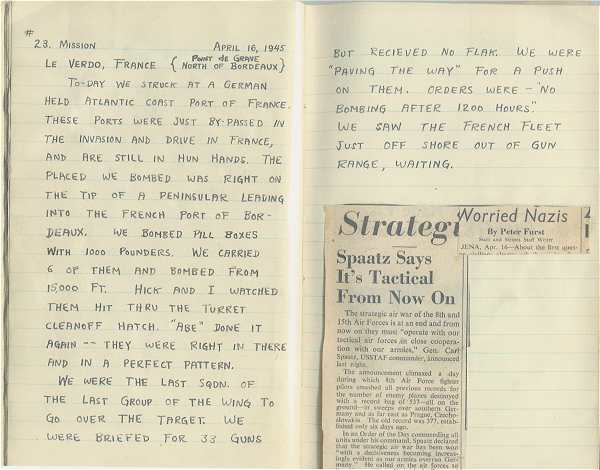 #
23. MISSION APRIL 16, 1945
LE VERDO, FRANCE { POINT de GRAVE
NORTH OF BORDEAUX }
TO-DAY WE STRUCK AT A GERMAN
HELD ATLANTIC COAST PORT OF FRANCE.
THESE PORTS WERE JUST BY-PASSED IN
THE INVASION AND DRIVE IN FRANCE,
AND ARE STILL IN HUN HANDS. THE
PLACED WE BOMBED WAS RIGHT ON
THE TIP OF A PENINSULAR LEADING
INTO THE FRENCH PORT OF BOR-
DEAUX. WE BOMBED PILL BOXES
WITH 1000 POUNDERS. WE CARRIED
6 OF THEM AND BOMBED FROM
15,000 FT. HICK AND I WATCHED
THEM HIT THRU THE TURRET
CLEANOFF HATCH. "ABE" DONE IT
AGAIN -- THEY WERE RIGHT IN THERE
AND IN A PERFECT PATTERN.
WE WERE THE LAST SQDN. OF
THE LAST GROUP OF THE WING TO
GO OVER THE TARGET. WE
WERE BRIEFED FOR 33 GUNS
BUT RECIEVED NO FLAK. WE WERE
"PAVING THE WAY" FOR A PUSH
ON THEM. ORDERS WERE - "NO
BOMBING AFTER 1200 HOURS".
WE SAW THE FRENCH FLEET
JUST OFF SHORE OUT OF GUN
RANGE, WAITING.
Strategi
Spaatz Says
It's Tactical
From Now On
The strategic air war of the 8th and
15th Air Forces is at an end and from
now on they must "operate with our
tactical air forces in close coopera-
tion with our armies," Gen. Carl
Spaatz, USSTAF commander, announced
last night.
The announcement climaxed a day
during which 8th Air Force fighter
pilots smashed all previous records for
the number of enemy planes destroyed
with a record bag of 537—all on the
ground—in sweeps over southern Ger-
many and as far east as Prague, Czecho-
slovakia. The old record was 377, estab-
lished only six days ago.
In an Order of the Day commending all
units under his command, Spaatz declared
that the strategic air war has been won
"with a decisiveness becoming increas-
ingly evident as our armies overrun Ger-
many." He called on the air forces to
Worried Nazis
By Peter Furst
Stars and Stripes Staff Writer
JENA, Apr. 16—About the first